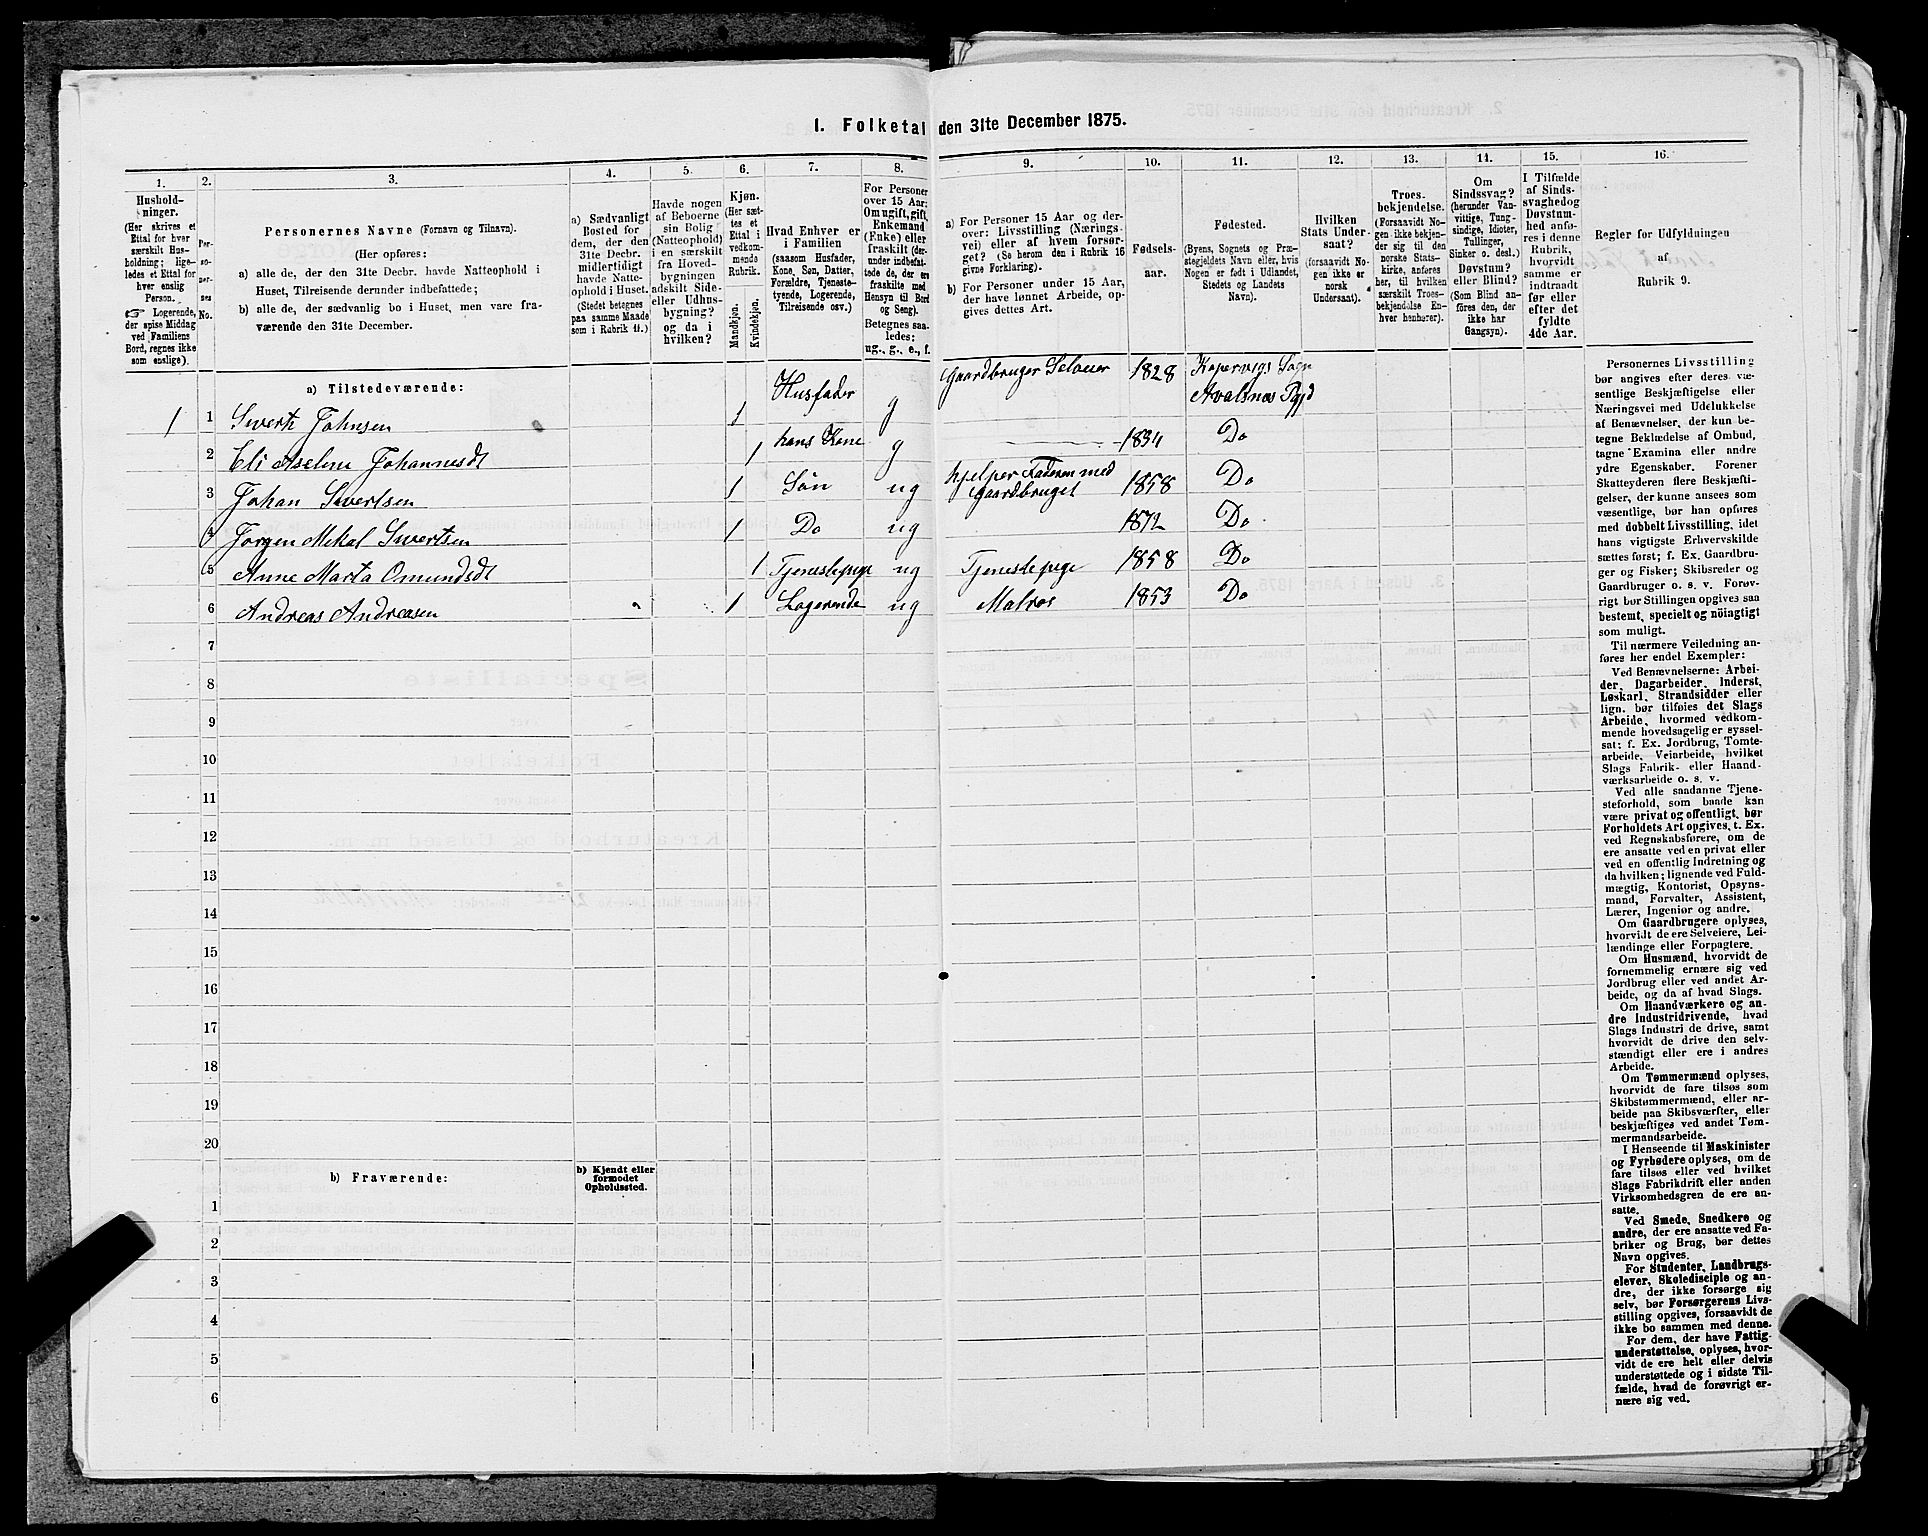 I. Folketal den 31te December 1875.
1. 2. 3. 4. 5. 6. 7. 8. 9. 10. 11. 12. 13. 14. 15. 16.
Hushold-
ninger.
(Her skrives et
Ettal for hver
særskilt Hus-
holdning; lige-
ledes et Ettal for
hver enslig
Person.
☞ Logerende,
der spise Middag
ved Familiens
Bord, regnes ikke
som enslige).
Per-
so-
ner-
nes
No.
Personernes Navne (Fornavn og Tilnavn).
(Her opføres:
a) alle de, der den 31te Decbr. havde Natteophold i
Huset, Tilreisende derunder indbefattede;
b) alle de, der sædvanlig bo i Huset, men vare fra-
værende den 31te December.
a) Sædvanligt
Bosted for
dem, der den
31te Decbr.
midlertidigt
havde Natte-
ophold i Huset.
(Stedet betegnes
paa samme Maade
som i Rubrik 11.)
Havde nogen
af Beboerne
sin Bolig
(Natteophold)
i en særskilt
fra Hoved-
bygningen
adskilt Side-
eller Udhus-
bygning?
og da i
hvilken?
Kjøn.
(Her sæt-
tes et
Ettal i
vedkom-
mende
Rubrik.
Mandkjøn.
Kvindekjøn.
Hvad Enhver er
i Familien
(saasom Husfader,
Kone, Søn, Datter,
Forældre, Tjeneste-
tyende, Logerende,
Tilreisende osv.)
For Personer
over 15 Aar:
Om ugift, gift,
Enkemand
(Enke) eller
fraskilt (der-
under indbefat-
tede de, der ere
fraskilte med
Hensyn til Bord
og Seng).
Betegnes saa-
ledes:
ug., g., e., f.
a) For Personer 15 Aar og der-
over: Livsstilling (Nærings-
vei) eller af hvem forsør-
get? (Se herom den i Rubrik 16
givne Forklaring).
b) For Personer under 15 Aar,
der have lønnet Arbeide, op-
gives dettes Art.
Fødsels-
aar.
Fødested.
(Byens, Sognets og Præ-
stegjeldets Navn eller, hvis
Nogen er født i Udlandet,
Stedets og Landets
Navn).
Hvilken
Stats Under-
saat?
(forsaavidt No-
gen ikke er
norsk
Undersaat).
Troes-
bekjendelse.
(Forsaavidt No-
gen ikke bekjen-
der sig til den
norske Stats-
kirke, anføres
her, til hvilken
særskilt Troes-
bekjendelse En-
hver henhører).
Om
Sindssvag?
(herunder Van-
vittige, Tung-
sindige, Idioter,
Tullinger,
Sinker o. desl.)
Døvstum?
eller Blind?
(Som Blind an-
føres den, der
ikke har
Gangsyn).
I Tilfælde
af Sinds-
svaghed og
Døvstum-
hed anfø-
res i denne
Rubrik,
hvorvidt
samme er
indtraadt
før eller
efter det
fyldte
4de Aar.
Regler for Udfyldningen
af
Rubrik 9.
a) Tilstedeværende:
1 1 Sivert Johnsen 1 Husfader g Gaardbruger Seleier 1828 Kopervigs Sogn
Avalsnes Pgjd
2 Eli Aselene Johannesdt 1 hans Kone g 1834 Do
3 Johan Sivertsen 1 Søn ug hjelper Faderen med
Gaardbruget 1858 Do
4 Jørgen Mikal Sivertsen 1 Do ug 1872 Do
5 Anne Marta Omundsdt 1 Tjenestepige ug Tjenestepige 1858 Do
6 Andreas Andreasen 1 Logerende ug Matros 1853 Do
7
8
9
10
11
12
13
14
15
16
17
18
19
20
b) Fraværende:
b) Kjendt eller
formodet
Opholdssted.
1
2
3
4
5
6
Personernes Livsstilling
bør angives efter deres væ-
sentlige Beskjæftigelse eller
Næringsvei med Udelukkelse
af Benævnelser, der kun be-
tegne Beklædelse af Ombud,
tagne Examina eller andre
ydre Egenskaber. Forener
Skatteyderen flere Beskjæfti-
gelser, der kunne ansees som
væsentlige, bør han opføres
med dobbelt Livsstilling, idet
hans vigtigste Erhvervskilde
sættes først; f. Ex. Gaardbru-
ger og Fisker; Skibsreder og
Gaardbruger o. s. v. Forøv-
rigt bør Stillingen opgives saa
bestemt, specielt og nöiagtigt
som muligt.
Til nærmere Veiledning an-
føres her endel Exempler:
Ved Benævnelserne: Arbei-
der, Dagarbeider, Inderst,
Løskarl, Strandsidder eller
lign. bør tilføies det Slags
Arbeide, hvormed vedkom-
mende hovedsagelig er syssel-
sat; f. Ex. Jordbrug, Tomte-
arbeide, Veiarbeide, hvilket
Slags Fabrik- eller Haand-
værksarbeide o. s. v.
Ved alle saadanne Tjene-
steforhold, som baade kan
være privat og offentligt, bør
Forholdets Art opgives, t. Ex.
ved Regnskabsførere, om de
ere ansatte ved en privat eller
ved en offentlig Indretning og
da hvilken; lignende ved Fuld-
mægtig, Kontorist, Opsyns-
mand, Forvalter, Assistent,
Lærer, Ingeniør og andre.
Om Gaardbrugere oplyses,
hvorvidt de ere Selveiere, Lei-
lændinge eller Forpagtere.
Om Husmænd, hvorvidt de
fornemmelig ernære sig ved
Jordbrug eller ved andet Ar-
beide, og da af hvad Slags.
Om Haandværkere og an-
dre Industridrivende, hvad
Slags Industri de drive, samt
hvorvidt de drive den selv-
stændigt eller ere i andres
Arbeide.
Om Tømmermænd oplyses,
hvorvidt de fare tilsøs som
Skibstømmermænd, eller ar-
beide paa Skibsværfter, eller
beskjæftiges ved andet Tøm-
mermandsarbeide.
I Henseende til Maskinister
og Fyrbødere oplyses, om de
fare tilsøs eller ved hvilket
Slags Fabrikdrift eller anden
Virksomhedsgren de ere an-
satte.
Ved Smede, Snedkere og
andre, der ere ansatte ved Fa-
briker og Brug, bør dettes
Navn opgives.
For Studenter, Landbrugs-
elever, Skoledisciple og an-
dre, der ikke forsørge sig
selv, bør Forsørgerens Livs-
stilling opgives, forsaavidt de
ikke bo sammen med denne.
For dem, der have Fattig-
understøttelse, oplyses, hvor-
vidt de ere helt eller delvis
understøttede og i sidste Til-
fælde, hvad de forøvrigt er-
nære sig ved.